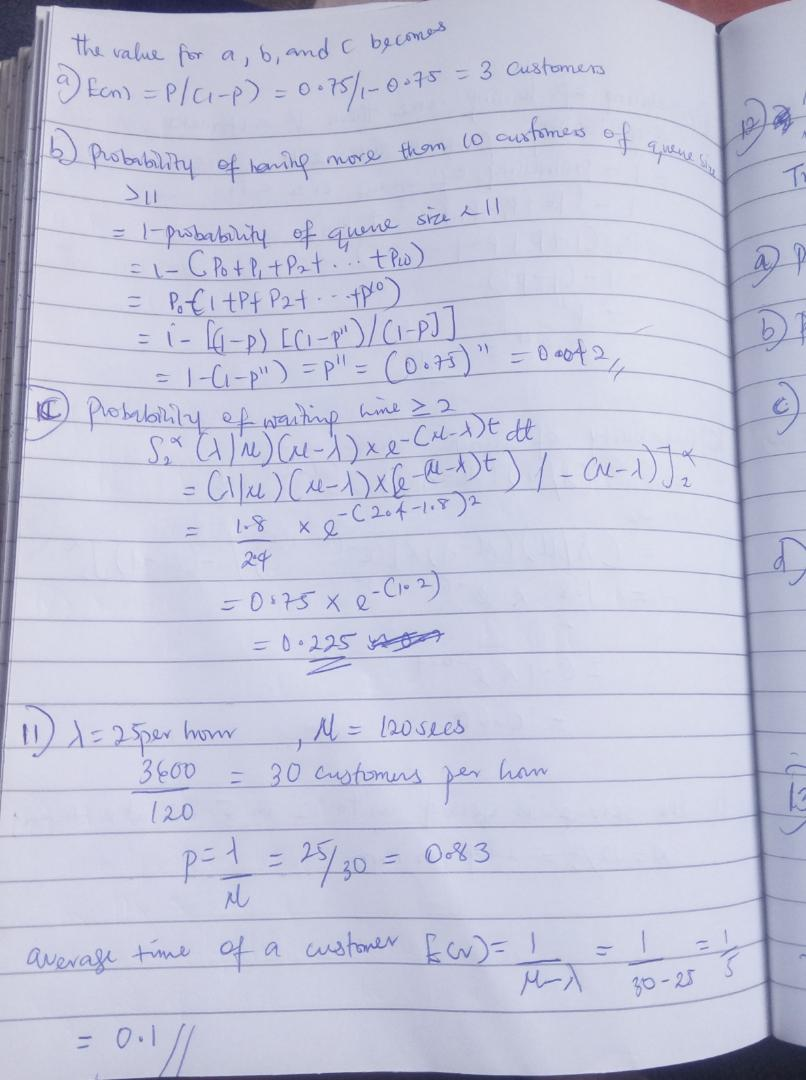 the value for a, b, and c becomes
a) E(n) = P/(1-P) = 0.75/1-0.75 = 3 customers
b) Probability of having more than 10 customers of queue size
>11
= 1-probability of queue size < 11
= 1 - (P0 + P1 + P2 + ... + P10)
= P0 (1 + P + P2 + ... + P10)
= 1 - [(1-P) [(1-P11)/(1-P]]
= 1-(1-P11) = P11 = (0.75)11 = 0.042
c) Probability of waiting time ≥ 2
∫2∝ (λ/μ)(μ-λ) x e-(μ-λ)t dt
= (λ/μ)(μ-λ) x (e-(μ-λ)t) / -(μ-λ)]2∝
= 1.8 x e-(2.4-1.8)2
2.4
= 0.75 x e-(1.2)
= 0.225
11) λ = 25per hour , M = 120secs
3600 = 30 customers per hour
120
P = λ = 25/30 = 0.83
M
average time of a customer E(v) = 1 = 1 = 1
M-λ 30-25 5
= 0.1 //
12)
Tr
a) P
b)
c)
d)
13